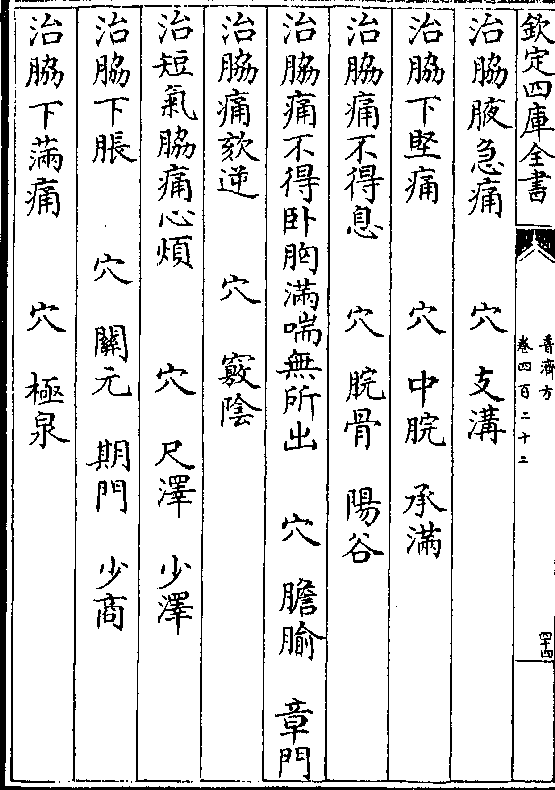 欽定四庫全書
普濟方
卷四百二十二
四十四
治脇腋急痛 穴 支溝
治脇下堅痛 穴 中脘 承滿
治脇痛不得息 穴 脘骨 陽谷
治脇痛不得卧胸滿喘無所出 穴 膽腧 章門
治脇痛欬逆 穴 竅陰
治短氣脇痛心煩 穴 尺澤 少澤
治脇下脹 穴 關元 期門 少商
治脇下滿痛 穴 極泉